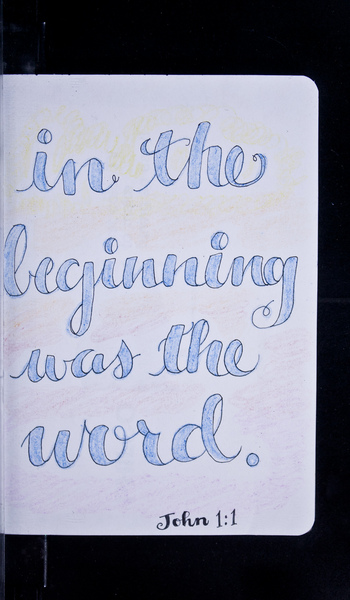 in the
beginning
was the
word.
John 1:1